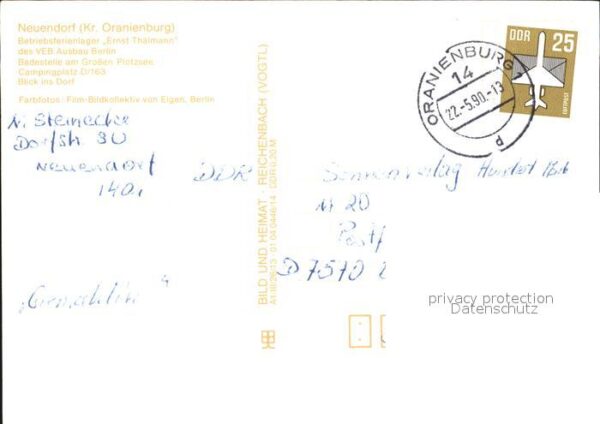 Neuendorf (Kr. Oranienburg)
Betriebsferienlager „Ernst Thälmann"
des VEB Ausbau Berlin
Badestelle am Großen Plotzsee
Campingplatz D/163
Blick ins Dorf
Farbfotos: Film-Bildkollektiv von Eigen, Berlin
N. Steinecke
Dorfstr. 30
Neuendorf
1401
DDR
BILD UND HEIMAT · REICHENBACH (VOGTL)
DDR 0,20 M
DDR 25
LUFTPOST
ORANIENBURG 1
14
22.-5.90.-13
Sonnenverlag
20
Postf
D 7570
privacy protection
Datenschutz